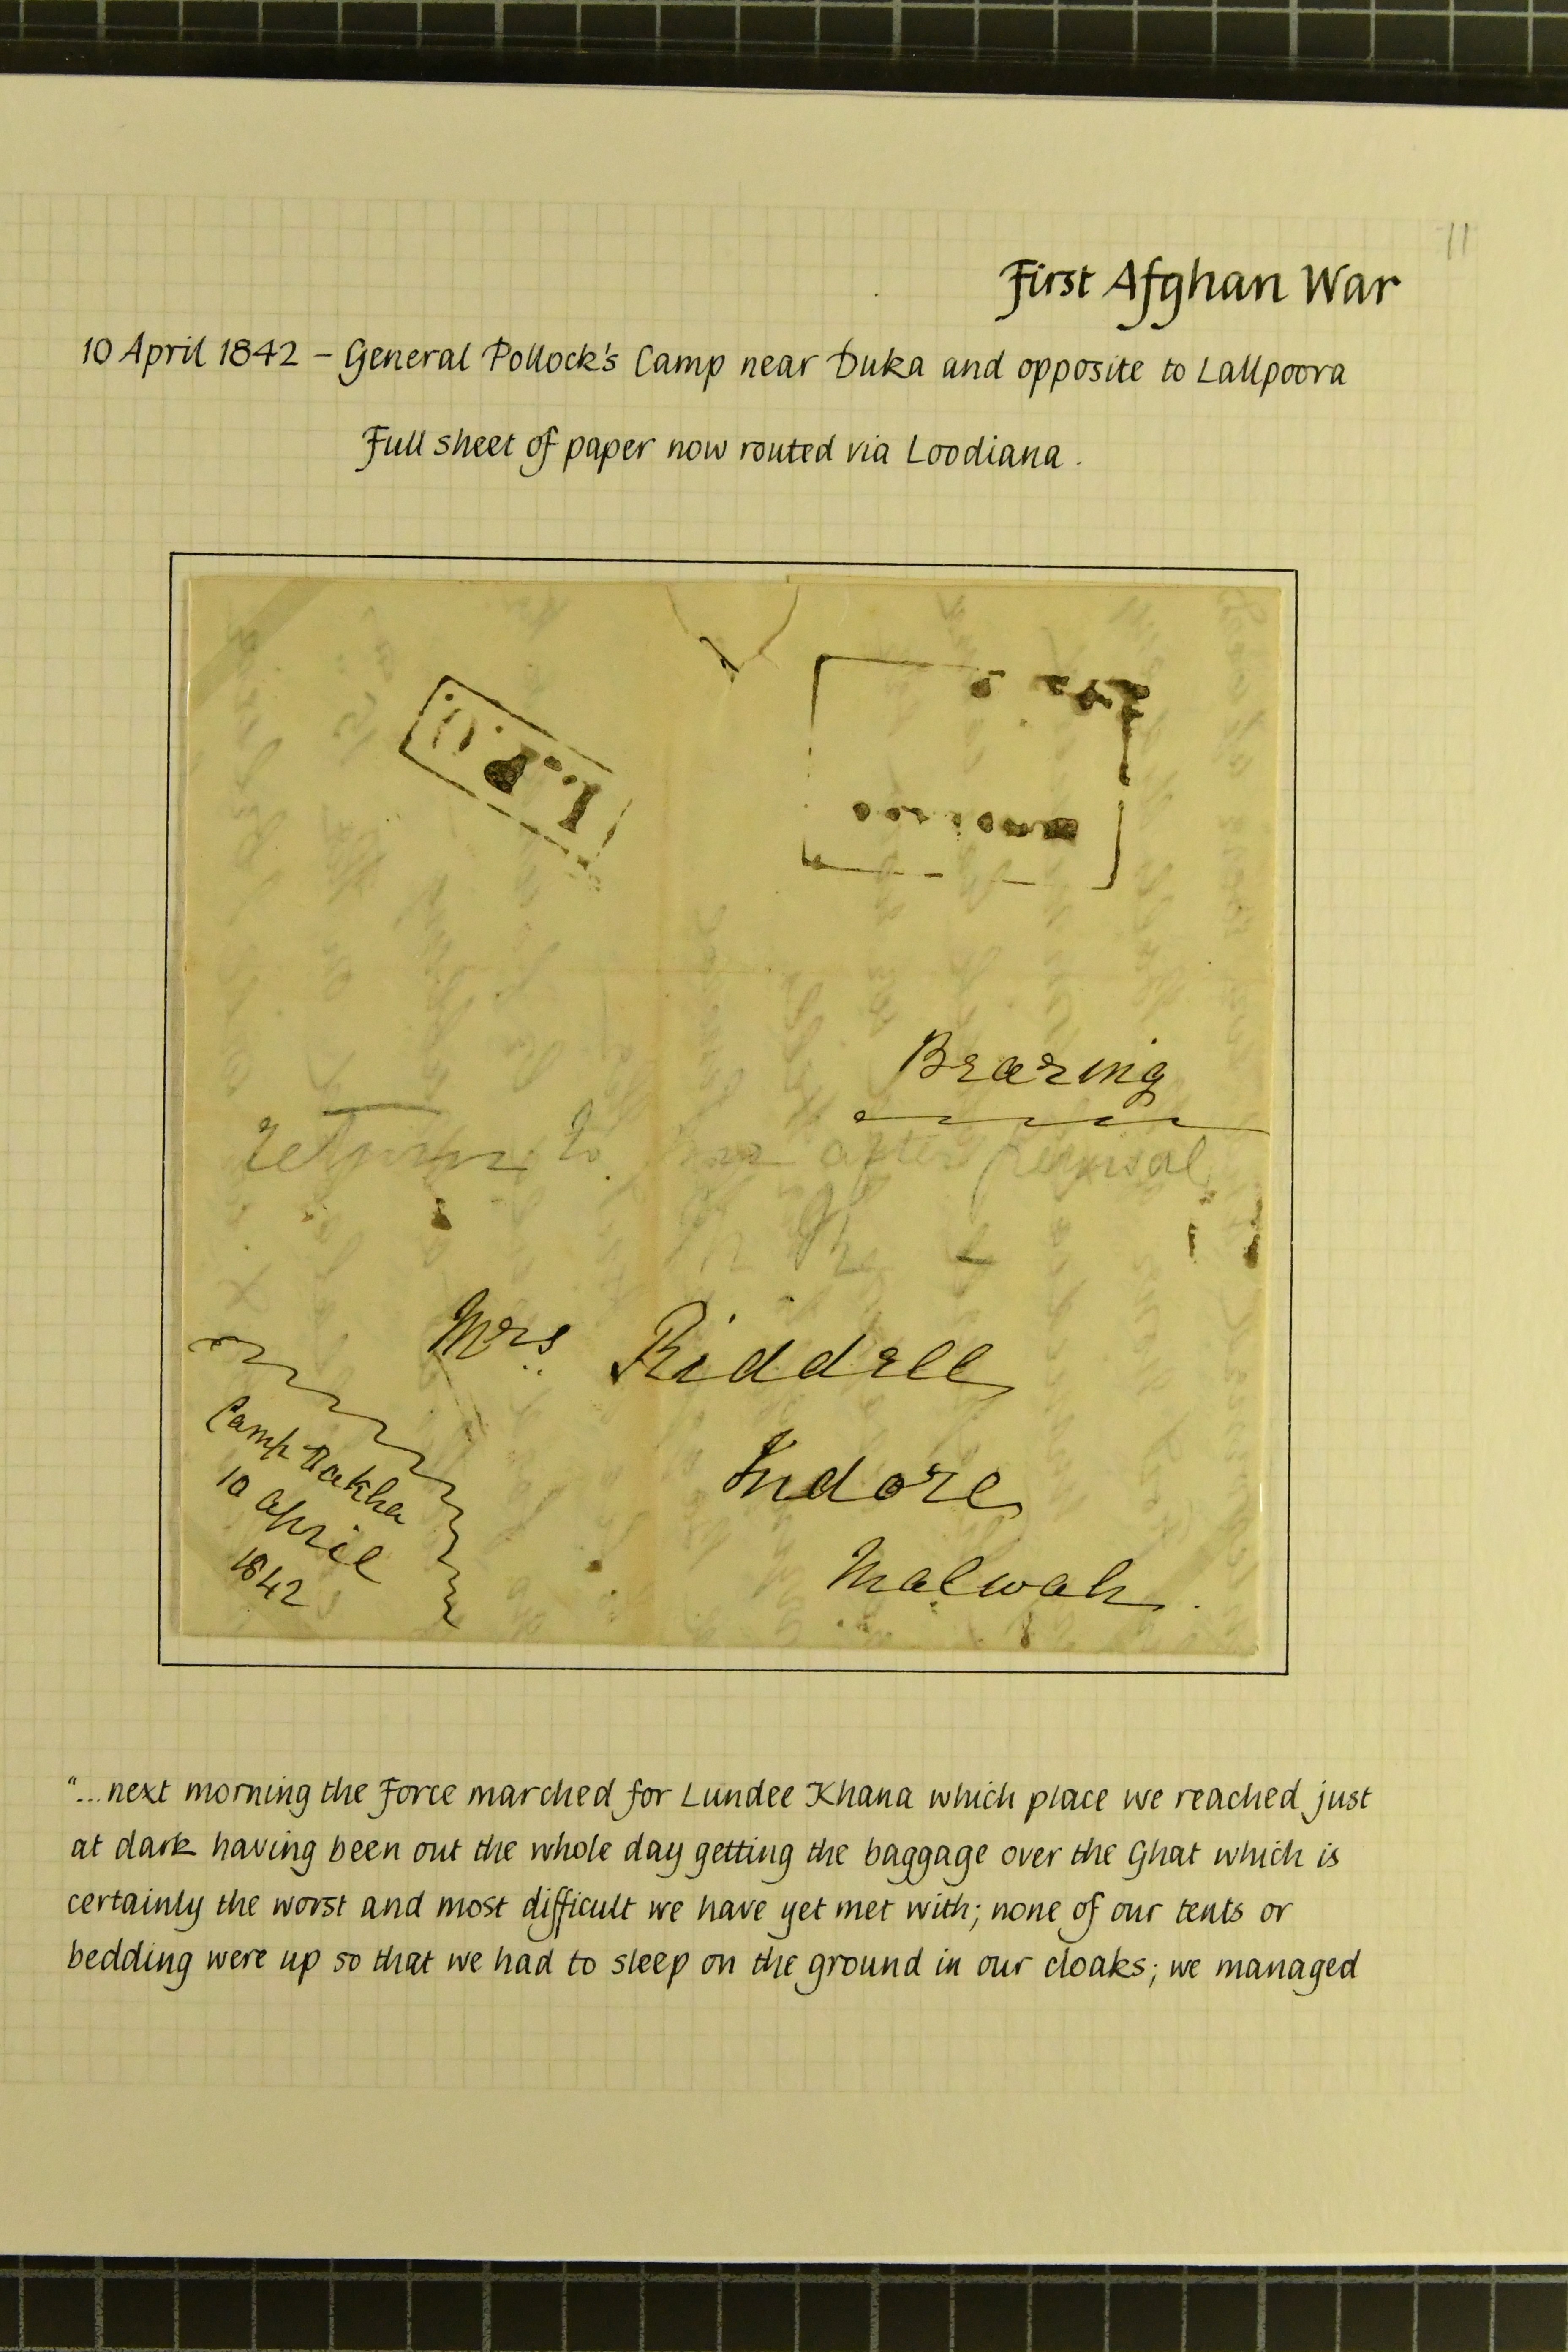 11
First Afghan War
10 April 1842 – General Pollock's Camp near Duka and opposite to Lallpoora
Full sheet of paper now routed via Loodiana.
Bearing
return to after perusal
Mrs. Riddell
Indore
Malwah.
Camp Dakha
10 April
1842
"...next morning the Force marched for Lundee Khana which place we reached just
at dark having been out the whole day getting the baggage over the Ghat which is
certainly the worst and most difficult we have yet met with; none of our tents or
bedding were up so that we had to sleep on the ground in our cloaks; we managed